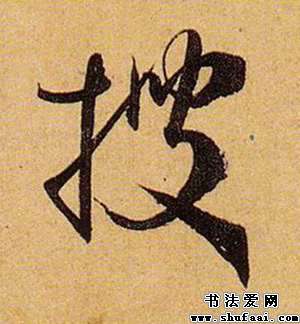 搜
书法爱网
www.shufaai.com